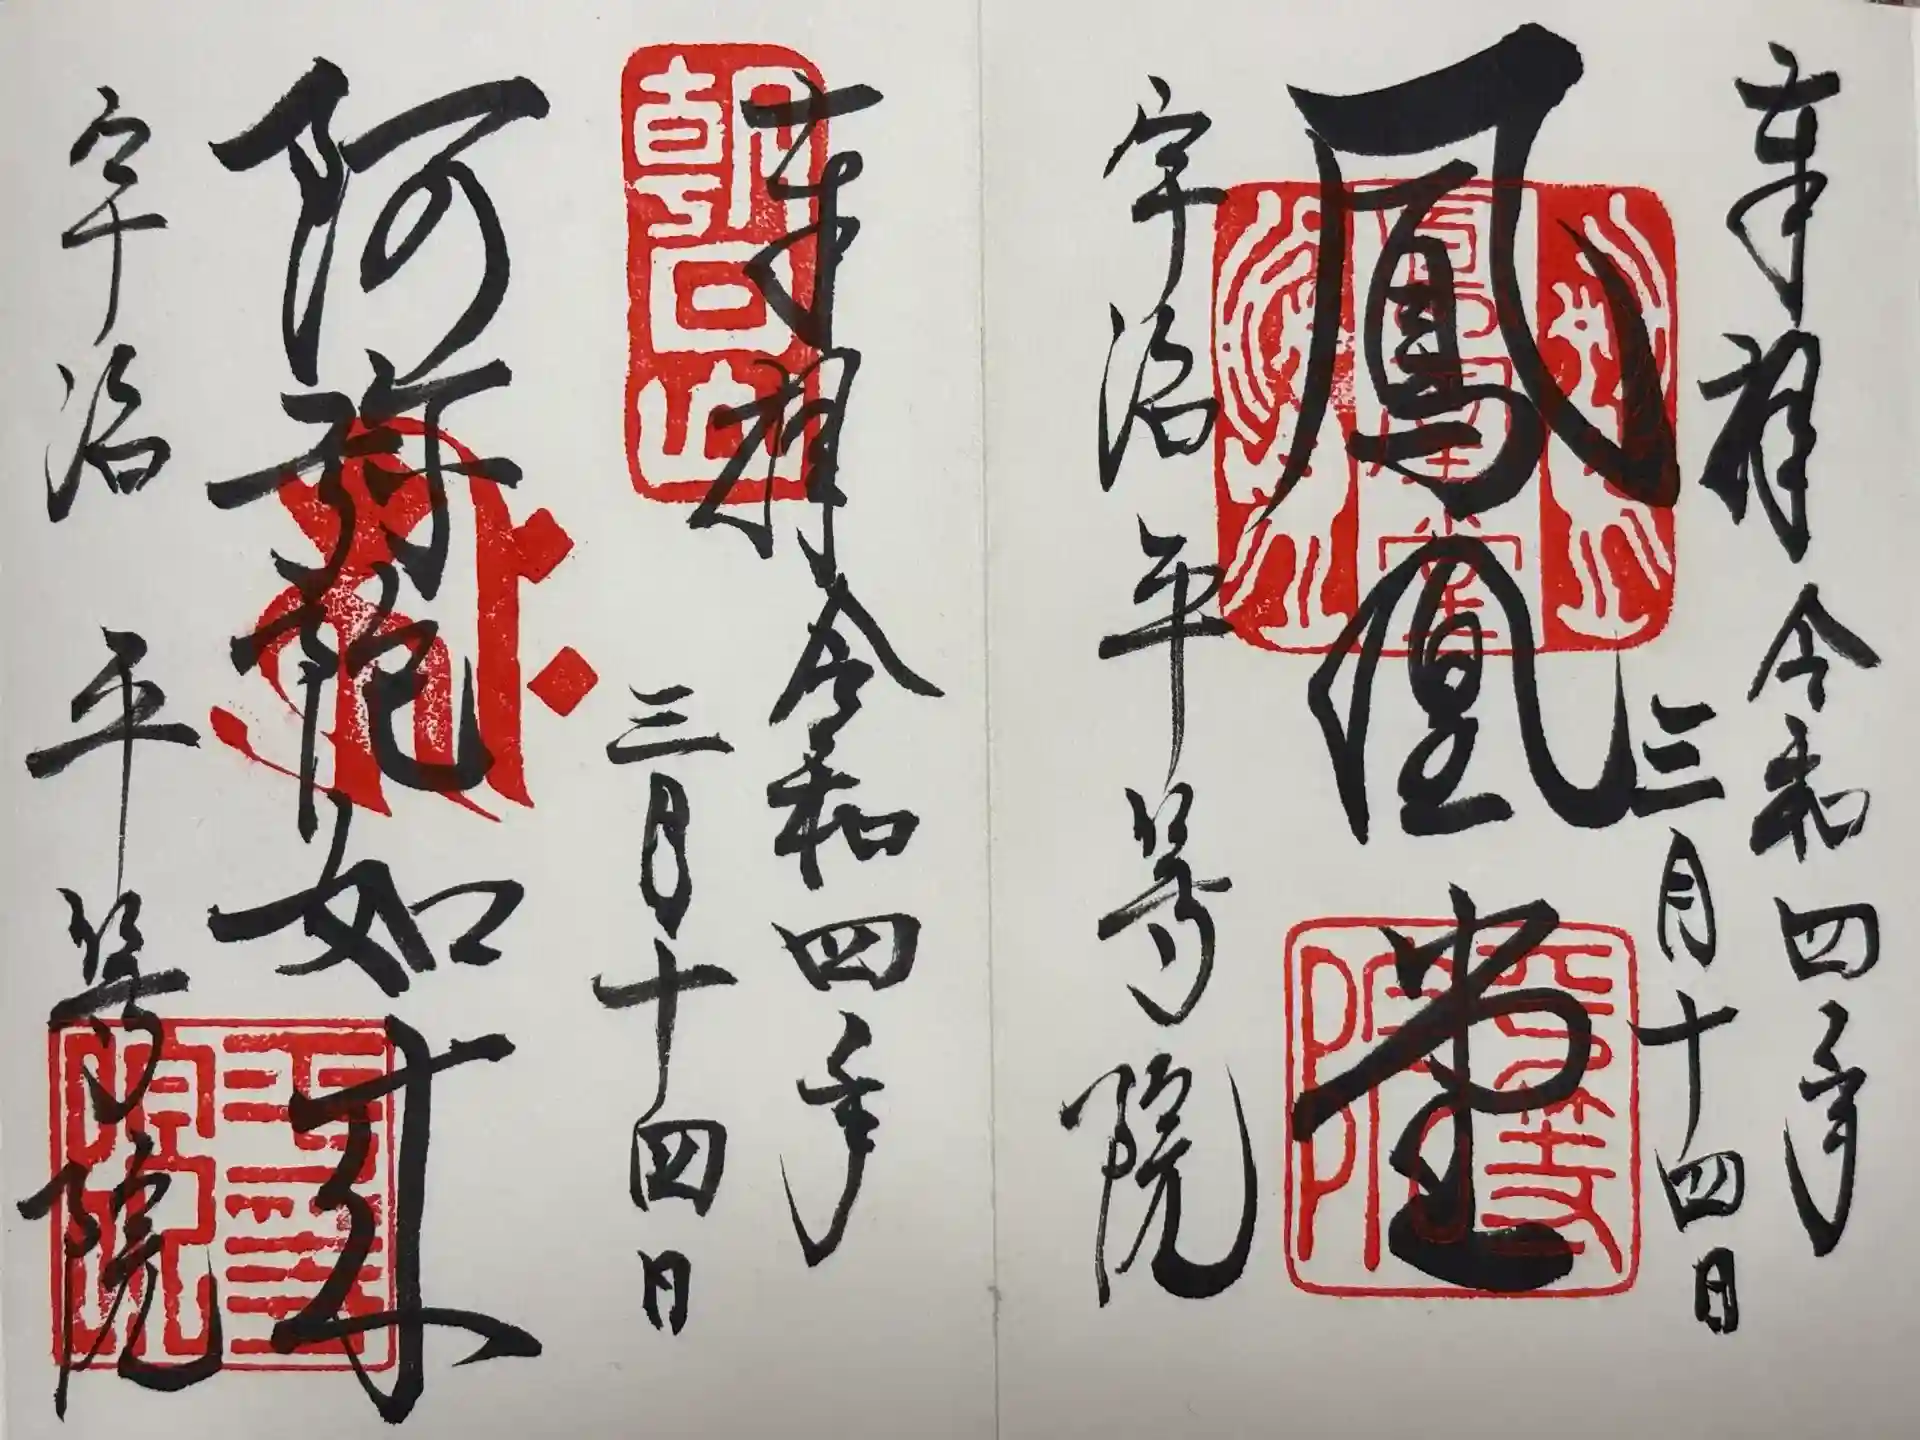 奉拝 令和四年
三月十四日
鳳凰堂
鳳凰堂
平等院
宇治 平等院
奉拝 令和四年
朝日山
三月十四日
阿弥陀如来
平等院
宇治 平等院